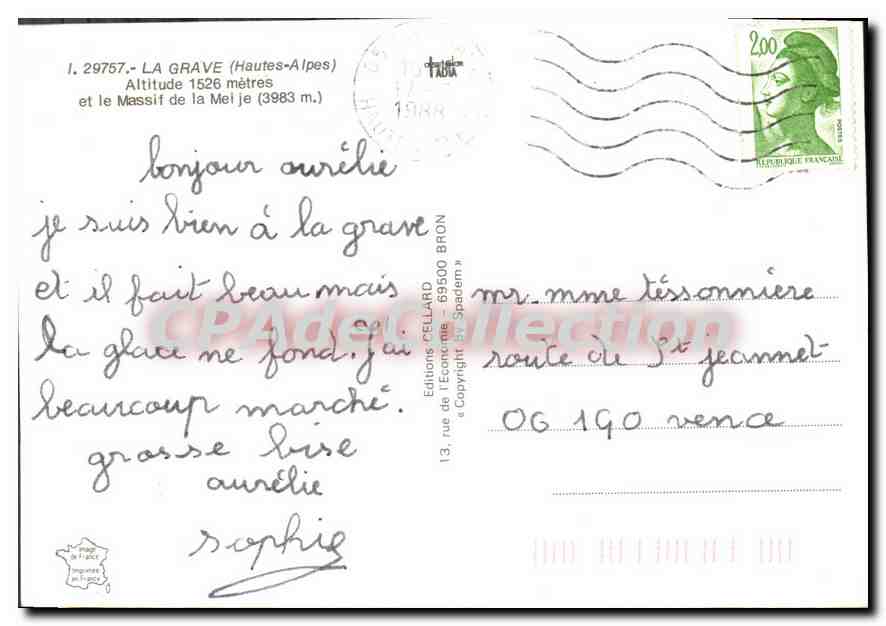 I. 29757.- LA GRAVE (Hautes-Alpes)
Altitude 1526 mètres
et le Massif de la Meije (3983 m.)
1988
2,00
POSTES
REPUBLIQUE FRANÇAISE
bonjour aurélie
je suis bien à la grave
et il fait beau mais
la glace ne fond. j'ai
beaucoup marché.
grosse bise
aurélie
sophie
Editions CELLARD
13, rue de l'Economie - 69500 BRON
« Copyright By Spadem »
mr. mme téssonnière
route de St jeannet
06 190 vence
Image
de France
Imprimée
en France
CPAdeCollection